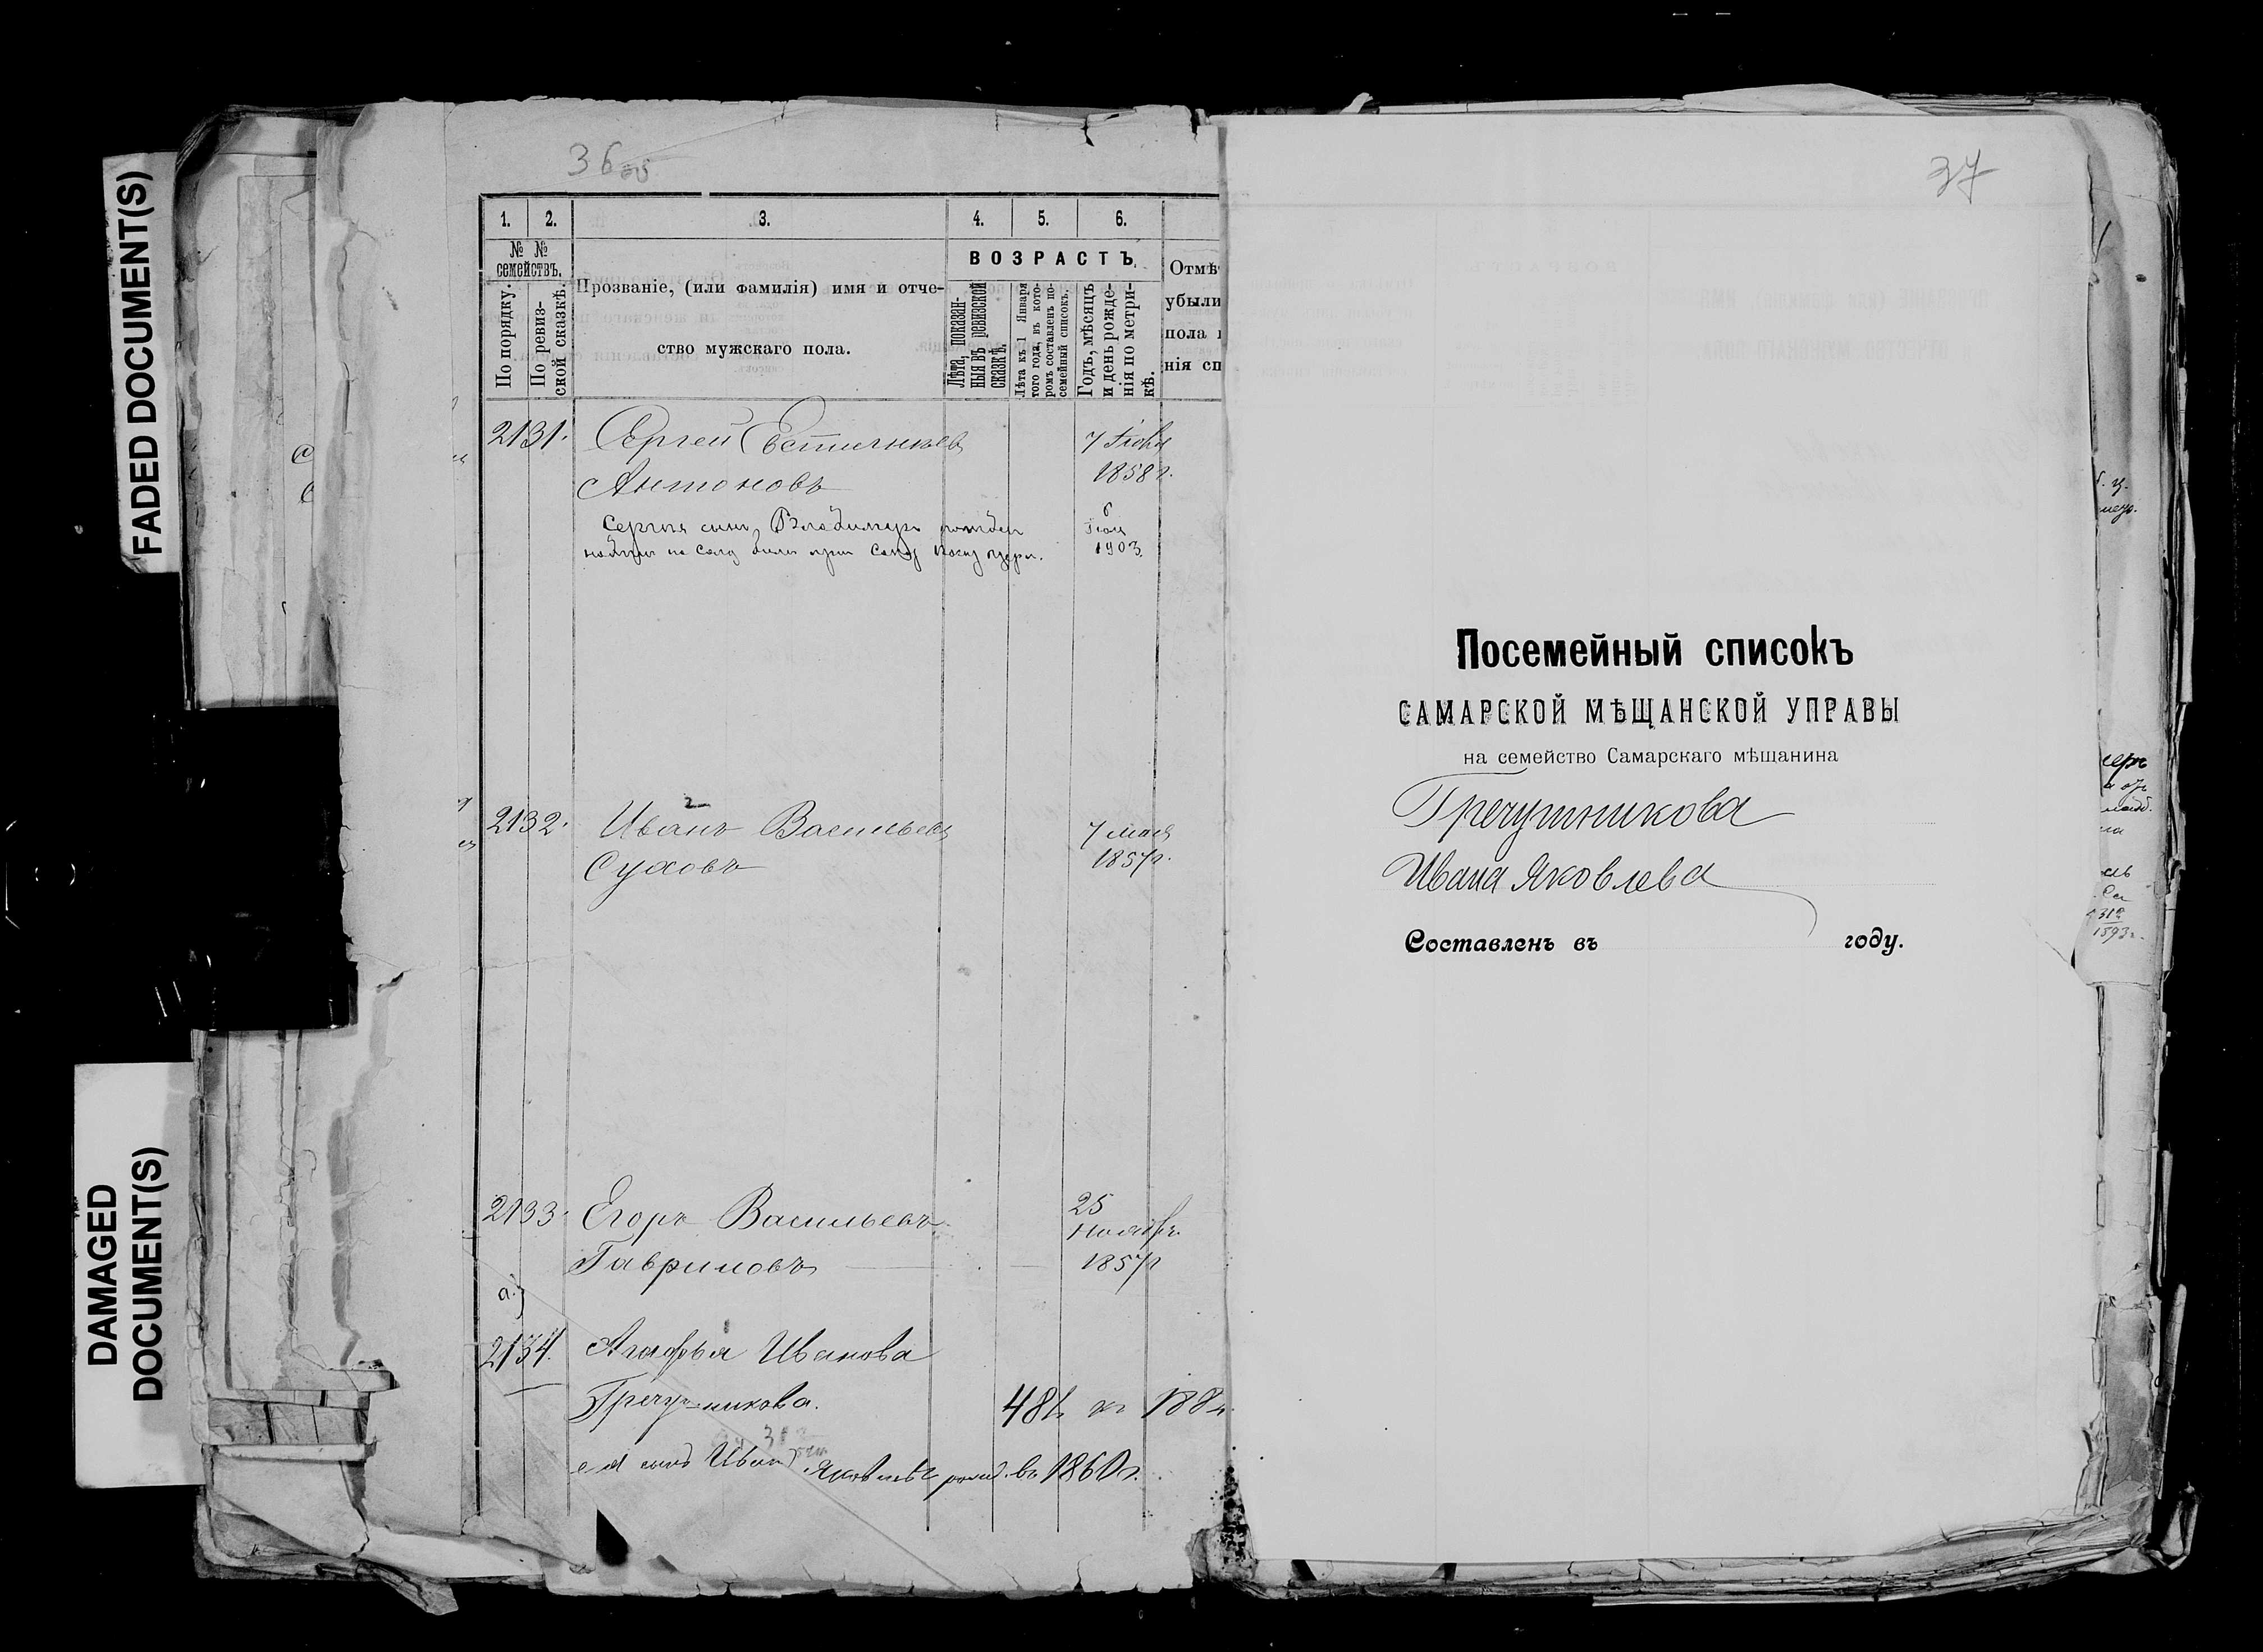 FADED DOCUMENT(S)
DAMAGED
DOCUMENT(S)
36 об
1. 2. 3. 4. 5. 6.
№ № семействъ.
По порядку.
По ревизской сказкѣ.
Прозваніе, (или фамилія) имя и отчество мужскаго пола.
ВОЗРАСТЪ.
Лѣта, показанныя въ ревизской сказкѣ.
Лѣта къ 1 Января того года, въ которомъ составленъ посемейный списокъ.
Годъ, мѣсяцъ и день рожденія по метрикѣ.
Отмѣ
убыли
пола
нія сп
2131. Сергей Евстигнѣевъ 7
Антоновъ 1858 г.
Сергѣя сынъ Владимиръ 6 Іюля
1903
2
2132. Иванъ Васильевъ 7 мая
Суховъ 1857 г.
2133. Егоръ Васильевъ 25 Ноября
Гавриловъ 1857 г
а)
2134. Агафья Иванова
Гречушникова. 48 л. къ 188
ея сынъ Иванъ Яковлевъ роджд. въ 1860 г.
37
Посемейный списокъ
САМАРСКОЙ МѢЩАНСКОЙ УПРАВЫ
на семейство Самарскаго мѣщанина
Гречушникова
Ивана Яковлева
Составленъ въ году.
1893 г.